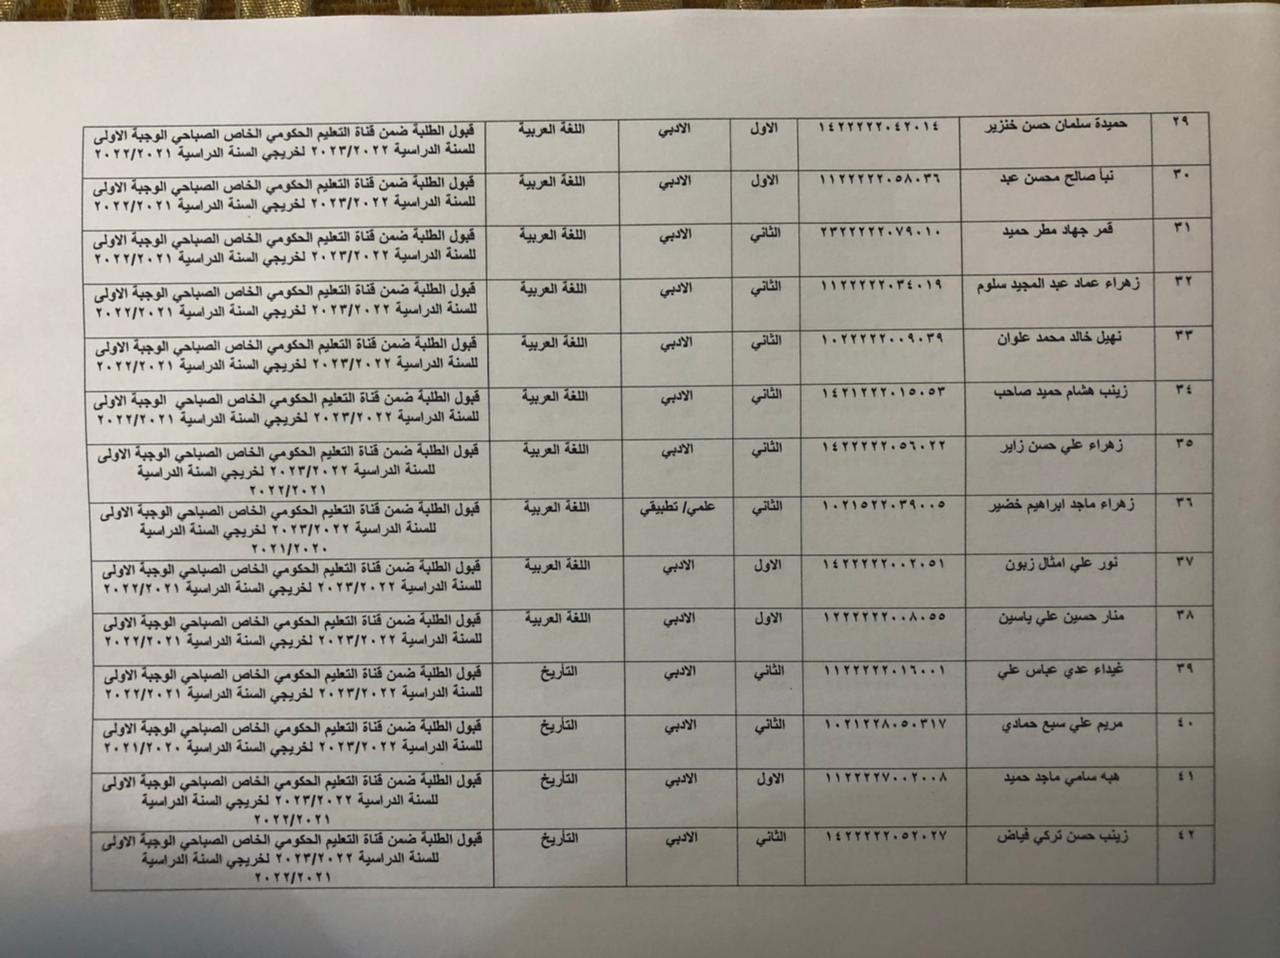 ٢٩ حميدة سلمان حسن خنزير ١٤٢٢٢٢٢٠٤٢٠١٤ الاول الادبي اللغة العربية قبول الطلبة ضمن قناة التعليم الحكومي الخاص الصباحي الوجبة الاولى
للسنة الدراسية ٢٠٢٣/٢٠٢٢ لخريجي السنة الدراسية ٢٠٢٢/٢٠٢١
٣٠ نبأ صالح محسن عبد ١١٢٢٢٢٢٠٥٨٠٣٦ الاول الادبي اللغة العربية قبول الطلبة ضمن قناة التعليم الحكومي الخاص الصباحي الوجبة الاولى
للسنة الدراسية ٢٠٢٣/٢٠٢٢ لخريجي السنة الدراسية ٢٠٢٢/٢٠٢١
٣١ قمر جهاد مطر حميد ٢٣٢٢٢٢٢٠٧٩٠١٠ الثاني الادبي اللغة العربية قبول الطلبة ضمن قناة التعليم الحكومي الخاص الصباحي الوجبة الاولى
للسنة الدراسية ٢٠٢٣/٢٠٢٢ لخريجي السنة الدراسية ٢٠٢٢/٢٠٢١
٣٢ زهراء عماد عبد المجيد سلوم ١١٢٢٢٢٢٠٣٤٠١٩ الثاني الادبي اللغة العربية قبول الطلبة ضمن قناة التعليم الحكومي الخاص الصباحي الوجبة الاولى
للسنة الدراسية ٢٠٢٣/٢٠٢٢ لخريجي السنة الدراسية ٢٠٢٢/٢٠٢١
٣٣ نهيل خالد محمد علوان ١٠٢٢٢٢٢٠٠٩٠٣٩ الثاني الادبي اللغة العربية قبول الطلبة ضمن قناة التعليم الحكومي الخاص الصباحي الوجبة الاولى
للسنة الدراسية ٢٠٢٣/٢٠٢٢ لخريجي السنة الدراسية ٢٠٢٢/٢٠٢١
٣٤ زينب هشام حميد صاحب ١٤٢١٢٢٢٠١٥٠٥٣ الثاني الادبي اللغة العربية قبول الطلبة ضمن قناة التعليم الحكومي الخاص الصباحي الوجبة الاولى
للسنة الدراسية ٢٠٢٣/٢٠٢٢ لخريجي السنة الدراسية ٢٠٢٢/٢٠٢١
٣٥ زهراء علي حسن زاير ١٤٢٢٢٢٢٠٥٦٠٢٢ الثاني الادبي اللغة العربية قبول الطلبة ضمن قناة التعليم الحكومي الخاص الصباحي الوجبة الاولى
للسنة الدراسية ٢٠٢٣/٢٠٢٢ لخريجي السنة الدراسية
٢٠٢٢/٢٠٢١
٣٦ زهراء ماجد ابراهيم خضير ١٠٢١٥٢٢٠٣٩٠٠٥ الثاني علمي/ تطبيقي اللغة العربية قبول الطلبة ضمن قناة التعليم الحكومي الخاص الصباحي الوجبة الاولى
للسنة الدراسية ٢٠٢٣/٢٠٢٢ لخريجي السنة الدراسية
٢٠٢١/٢٠٢٠
٣٧ نور علي امثال زبون ١٤٢٢٢٢٢٠٠٢٠٥١ الاول الادبي اللغة العربية قبول الطلبة ضمن قناة التعليم الحكومي الخاص الصباحي الوجبة الاولى
للسنة الدراسية ٢٠٢٣/٢٠٢٢ لخريجي السنة الدراسية ٢٠٢٢/٢٠٢١
٣٨ منار حسين علي ياسين ١٢٢٢٢٢٢٠٠٨٠٥٥ الاول الادبي اللغة العربية قبول الطلبة ضمن قناة التعليم الحكومي الخاص الصباحي الوجبة الاولى
للسنة الدراسية ٢٠٢٣/٢٠٢٢ لخريجي السنة الدراسية ٢٠٢٢/٢٠٢١
٣٩ غيداء عدي عباس علي ١١٢٢٢٢٢٠١٦٠٠١ الثاني الادبي التأريخ قبول الطلبة ضمن قناة التعليم الحكومي الخاص الصباحي الوجبة الاولى
للسنة الدراسية ٢٠٢٣/٢٠٢٢ لخريجي السنة الدراسية ٢٠٢٢/٢٠٢١
٤٠ مريم علي سبع حمادي ١٠٢١٢٢٨٠٥٠٣١٧ الثاني الادبي التأريخ قبول الطلبة ضمن قناة التعليم الحكومي الخاص الصباحي الوجبة الاولى
للسنة الدراسية ٢٠٢٣/٢٠٢٢ لخريجي السنة الدراسية ٢٠٢١/٢٠٢٠
٤١ هبه سامي ماجد حميد ١١٢٢٢٢٧٠٠٢٠٠٨ الاول الادبي التأريخ قبول الطلبة ضمن قناة التعليم الحكومي الخاص الصباحي الوجبة الاولى
للسنة الدراسية ٢٠٢٣/٢٠٢٢ لخريجي السنة الدراسية
٢٠٢٢/٢٠٢١
٤٢ زينب حسن تركي فياض ١٤٢٢٢٢٢٠٥٢٠٢٧ الثاني الادبي التأريخ قبول الطلبة ضمن قناة التعليم الحكومي الخاص الصباحي الوجبة الاولى
للسنة الدراسية ٢٠٢٣/٢٠٢٢ لخريجي السنة الدراسية
٢٠٢٢/٢٠٢١